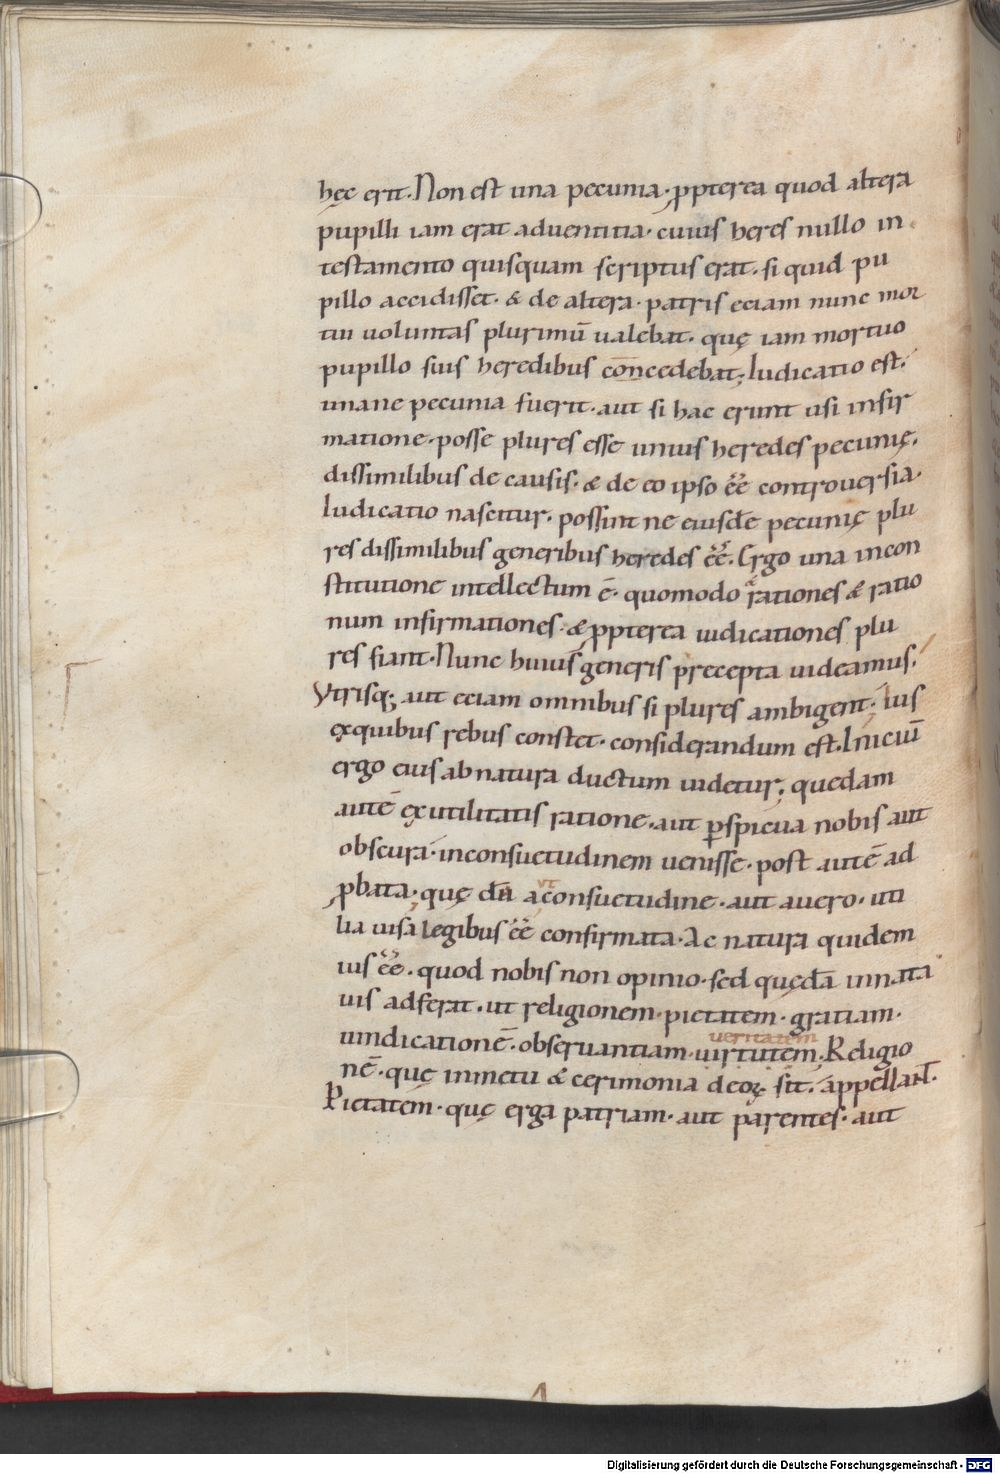 hęc erit. Non est una pecunia. ꝓpterea quod altera
pupilli iam erat aduenticia. cuius heres nullo in
testamento quisquam scriptus erat. si quid pu
pillo accidisset. & de altera. patris eciam nunc mor
tui uoluntas plurimū ualebat. quę iam mortuo
pupillo suis heredibus cōncedebat; Iudicatio est.
unane pecunia fuerit. aut si hac erunt usi infir
matione. posse plures esse unius heredes pecunię.
dissimilibus de causis. & de eo ipso eē controuersia.
Iudicatio nascitur. possint ne eiusdē pecunię plu
res dissimilibus generibus heredes eē. Ergo una incon
stitutione intellectum ē. quomodo & rationes & ratio
num infirmationes. & ꝓpterea iudicationes plu
res fiant. Nunc huius generis precepta uideamus.
Vtrisq; aut eciam omnibus si plures ambigent. ius
exquibus rebus constet. considerandum est. Iniciū
ergo eius ab natura ductum uidetur; quedam
autē ex utilitatis ratione. aut ꝑspicua nobis aut
obscura. inconsuetudinem uenisse. post autē ad
ꝓbata. quę dā a consuetudine. aut auero. uti
ut
lia uisa legibus eē confirmata. Ac natura quidem
ius eē. quod nobis non opinio. sed quędā innata
uis adferat. ut religionem. pietatem. gratiam.
ueritatem
uindicationē. obseruantiam. uirtutem. Religio
nē. quę inmetu & cerimonia deoꝝ sit. appellant.
Pietatem. quę erga patriam. aut parentes. aut
Digitalisierung gefördert durch die Deutsche Forschungsgemeinschaft - DFG